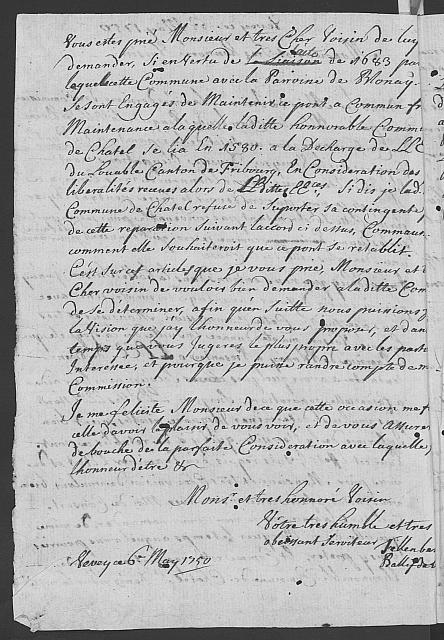 Vous estes prié Monsieur et tres Cher Voisin de luy
demander, Si en vertu de la liaison traité de 1683 par
laquelle cette Commune avec la Paroisse de Blonay
Se sont Engagés de Maintenir ce pont a Commun fr
Maintenance a laquelle laditte honnorable Commu
de Chatel se lia En 1580. a la Decharge de LL
du Louable Canton de Fribourg, En Consideration des
liberalités receues alors de LL
Commune de Chatel refuse de Suporter sa contingente,
de cette reparation Suivant laccord ci dessus, Comme
comment elle souhaiteroit que ce pont se retablit.
C'est sur ces articles que je vous prie, Monsieur et
Cher voisin de vouloir bien demander a laditte Com
de se déterminer, afin qu'en Suitte nous puissions
la Vision que jay lhonneur de vous proposer, et dan
temps que vous Jugeres le plus propre avec les parti
Interessee, et pour que je puisse randre compte de m
Commission.
Je me felicite Monsieur de ce que cette occasion me f
celle d'avoir le plaisir de vous voir, et de vous Assure
de bouche de la parfaite Consideration avec laquelle
lhonneur d'etre &c
Monsr. et tres honnoré Voisin
Votre tres humble et tres
obeissant Serviteur
Fellenber
Vevey ce 6e May 1750